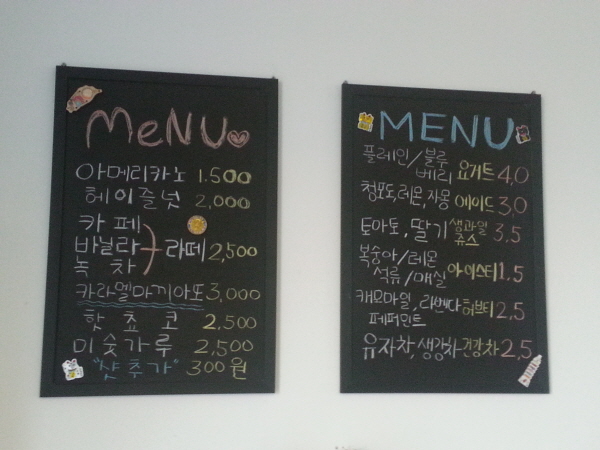 MeNU
아메리카노 1.500
헤이즐넛 2,000
카페
바닐라 라떼 2,500
녹차
카라멜마끼아또 3,000
핫쵸코 2,500
미숫가루 2,500
"샷추가" 300원
MENU
플레인/블루
베리 요거트 4,0
청포도,레몬,자몽 에이드 3,0
토마토, 딸기 생과일 쥬스 3,5
복숭아/레몬
석류/매실 아이스티 1.5
캐모마일, 라벤다 허브티 2.5
페퍼민트
유자차, 생강차 건강차 2,5